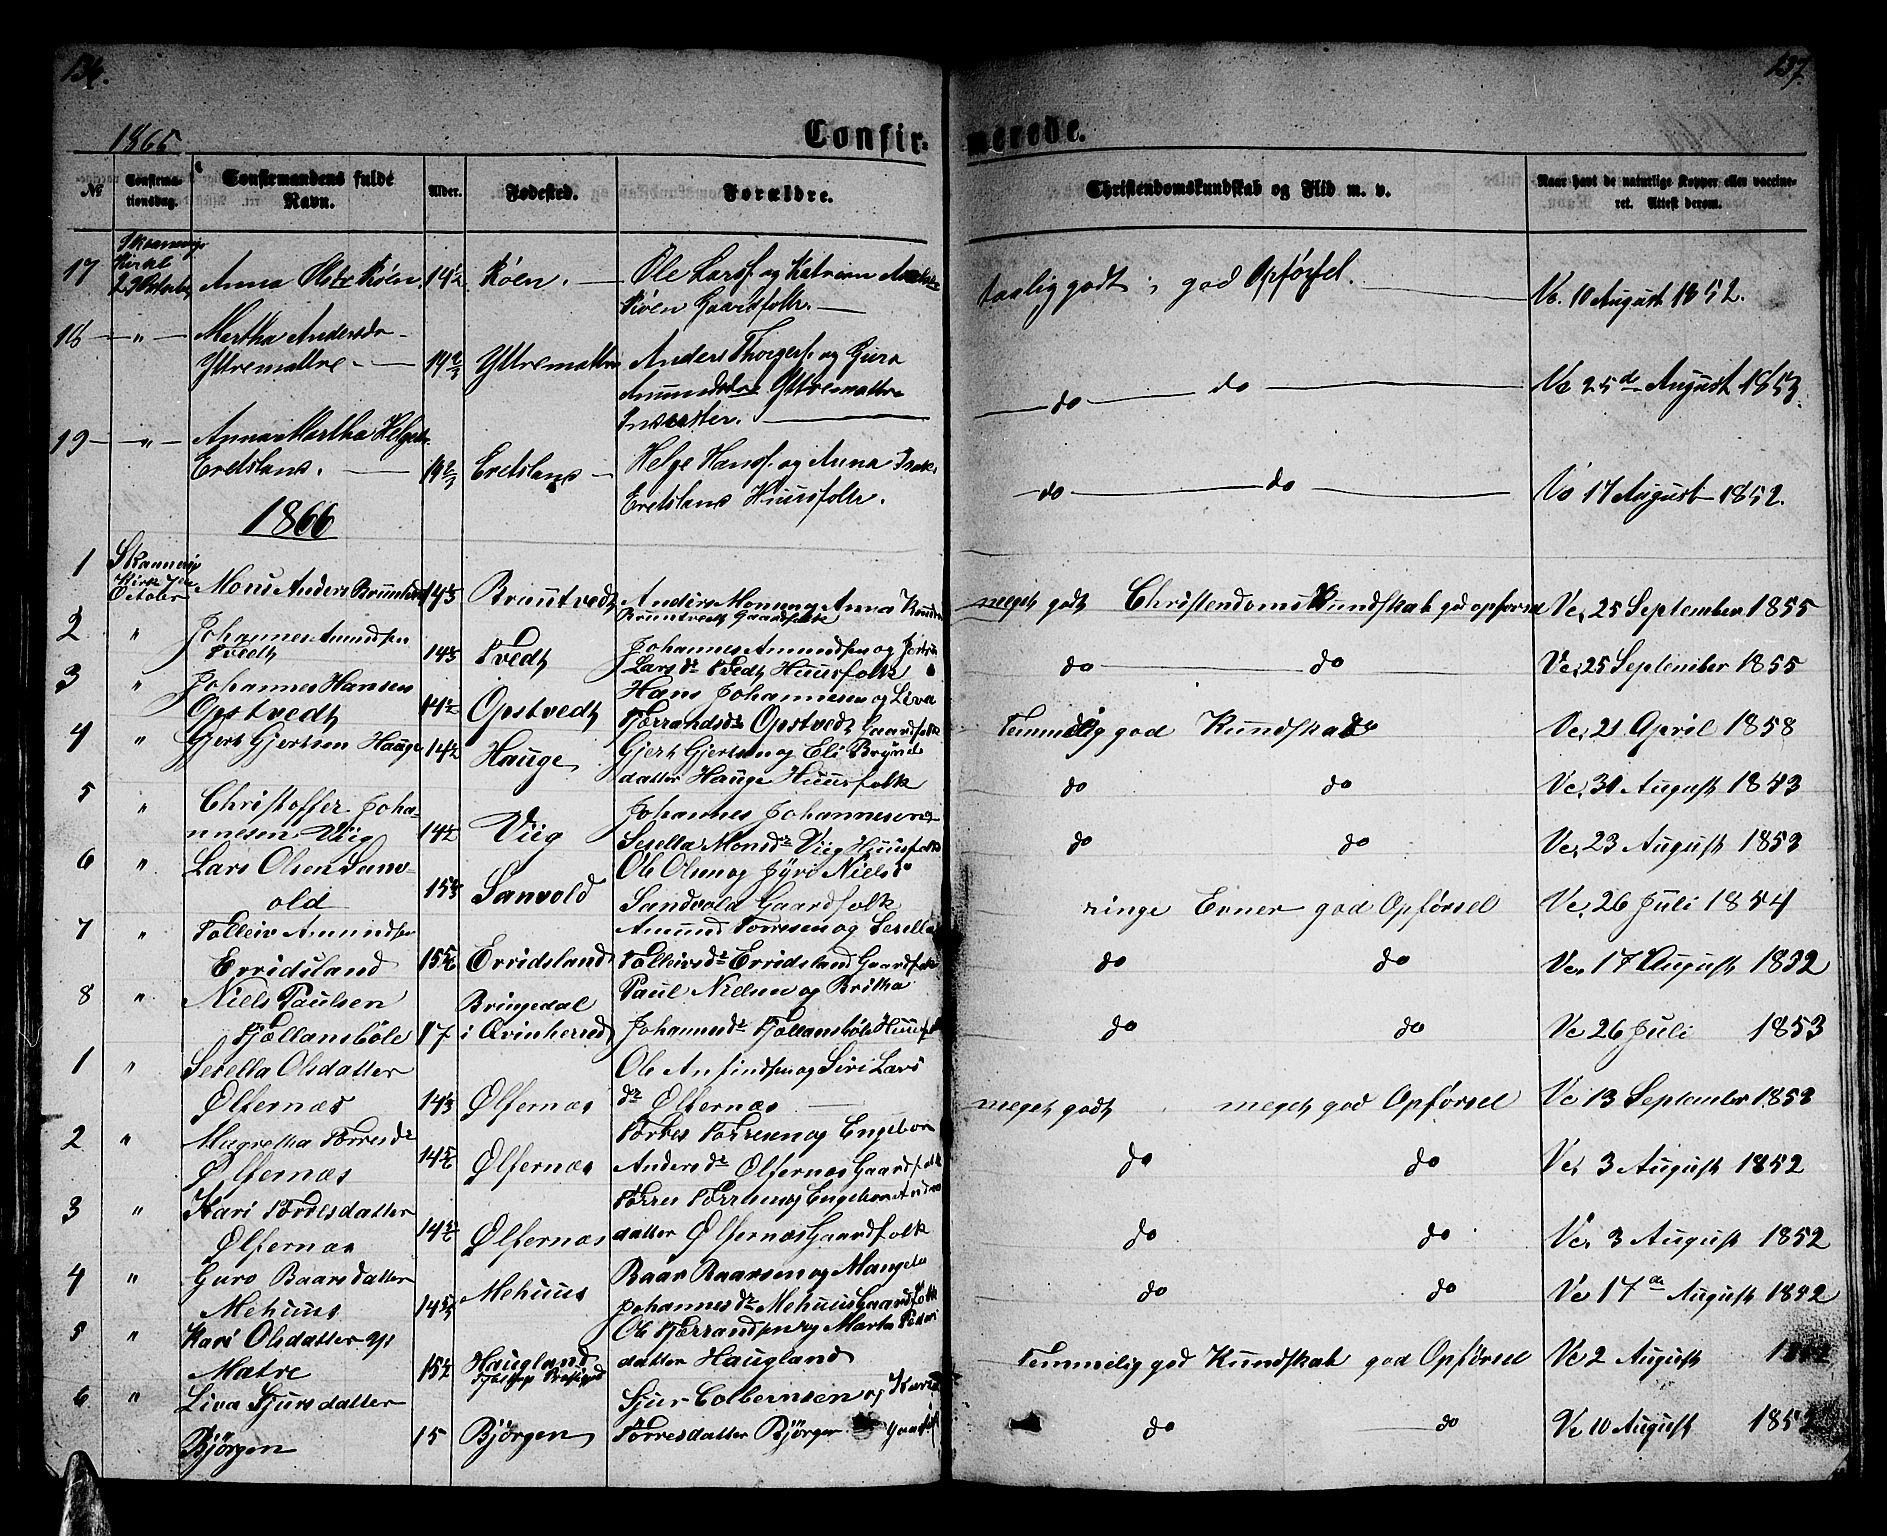 136.
137.
1865
Confir-
merede.
№
Confirma-
tionsdag.
Confirmandens fulde
Navn.
Alder.
Fødested.
Forældre.
Christendomskundskab og Flid m. v.
Naar havt de naturlige Kopper eller vaccine-
ret. Attest derom.
17
Kirke
Anna Olsdr Röen
14½
Röen.
Ole Larsf. og
Röen Gaardfolk.
taalig godt, god Opførsel.
Ve. 10 August 1852.
18 - " -
Martha Andersdr
Yttremattre
Yttremattre
Anders Thorgersf. og Guro
Amundsdr Yttremattre
Indester.
do do
Ve 25de August 1853.
19 - " -
Anna Martha Helgesdr.
Eretsland.
Eretsland
Helge Hansf. og Anna
Eretsland Huusfolk.
do do
Ve 17 August 1852.
1866
1
Kirke 7de
October
Mons Anders
Bruntvedt
Anders Mons og Anna
Bruntvedt Gaardfolk
meget godt Christendoms Kundskab gd opførsel
Ve, 25 September 1855
2 "
Johannes Amundsen
Tvedt
Tvedt
Johannes Amundsen og
Larsdr Tvedt Huusfolk
do do
Ve, 25 September 1855
3 "
Johannes Hansen
Opstvedt
Opstvedt
Hans Johannesen og Liva
Tjerrandsdr Opstvedt Gaardfolk
Temmelig god Kundskab do
Ve, 21 April 1858
4 "
Gjert Gjertsen Hauge
Hauge
Gjert Gjertsen og Eli Brynild
datter Hauge Huusfolk
do do
Ve, 31 August 1853
5 "
Christoffer Joha-
nnesen Viig
Viig
Johannes Johannesen
Sesella Monsdr Viig Huusfolk
do do
Ve, 23 August 1853
6 "
Lars Olsen Sanv-
old
Sanvold
Ole Olsen og Jyri Nielsd
Sandvold Gaardfolk
ringe Evner god Opførsel
Ve, 26 Juli 1854
7 "
Tolleiv Amundsen
Erridsland
Erridsland
Amund Torresen og Sesella
Tolleivsdr Erridsland Gaardfolk
do do
Ve, 17 August 1852
8 "
Niels Paulsen
Fjellandsböle
17
Bringedal
i Qvinherred
Paul Nielsen og Britha
Johannesdr Fjellandsböle Huusfolk
do do
Ve 26 Juli 1853
1 "
Sesella Olsdatter
Ølfernæs
Ølfernæs
Ole Anfindsen og Siri Lars
dr Ølfernæs
meget godt meget god Opførsel
Ve 13 September 1853
2 "
Magretha Torresdr
Ølfernæs
Ølfernæs
Torres Torresen og Engebor
Andersdr Ølfernæs Gaardfolk
do do
Ve, 3 August 1852
3 "
Kari Torresdatter
Ølfernæs
Ølfernæs
Torres Torresen og Engebor Anders
datter Ølfernæs Gaardfolk
do do
Ve, 3 August 1852
4 "
Guro Baarsdatter
Mehuus
Mehuus
Baar Baarsen og Mangela
Johannesdr Mehuus Gaardfolk
do do
Ve 17de August 1852
5 "
Kari Olsdatter
Matre
Haugland
Ole Tjerrandsen og Marta
datter Haugland
Temmelig god Kundskab god Opførsel
Ve 2 August
6 "
Liva Sjursdatter
Bjørgen
15
Bjørgen
Sjur Colbernsen og
Torresdatter Bjørgen
do do
Ve 10 August 1852